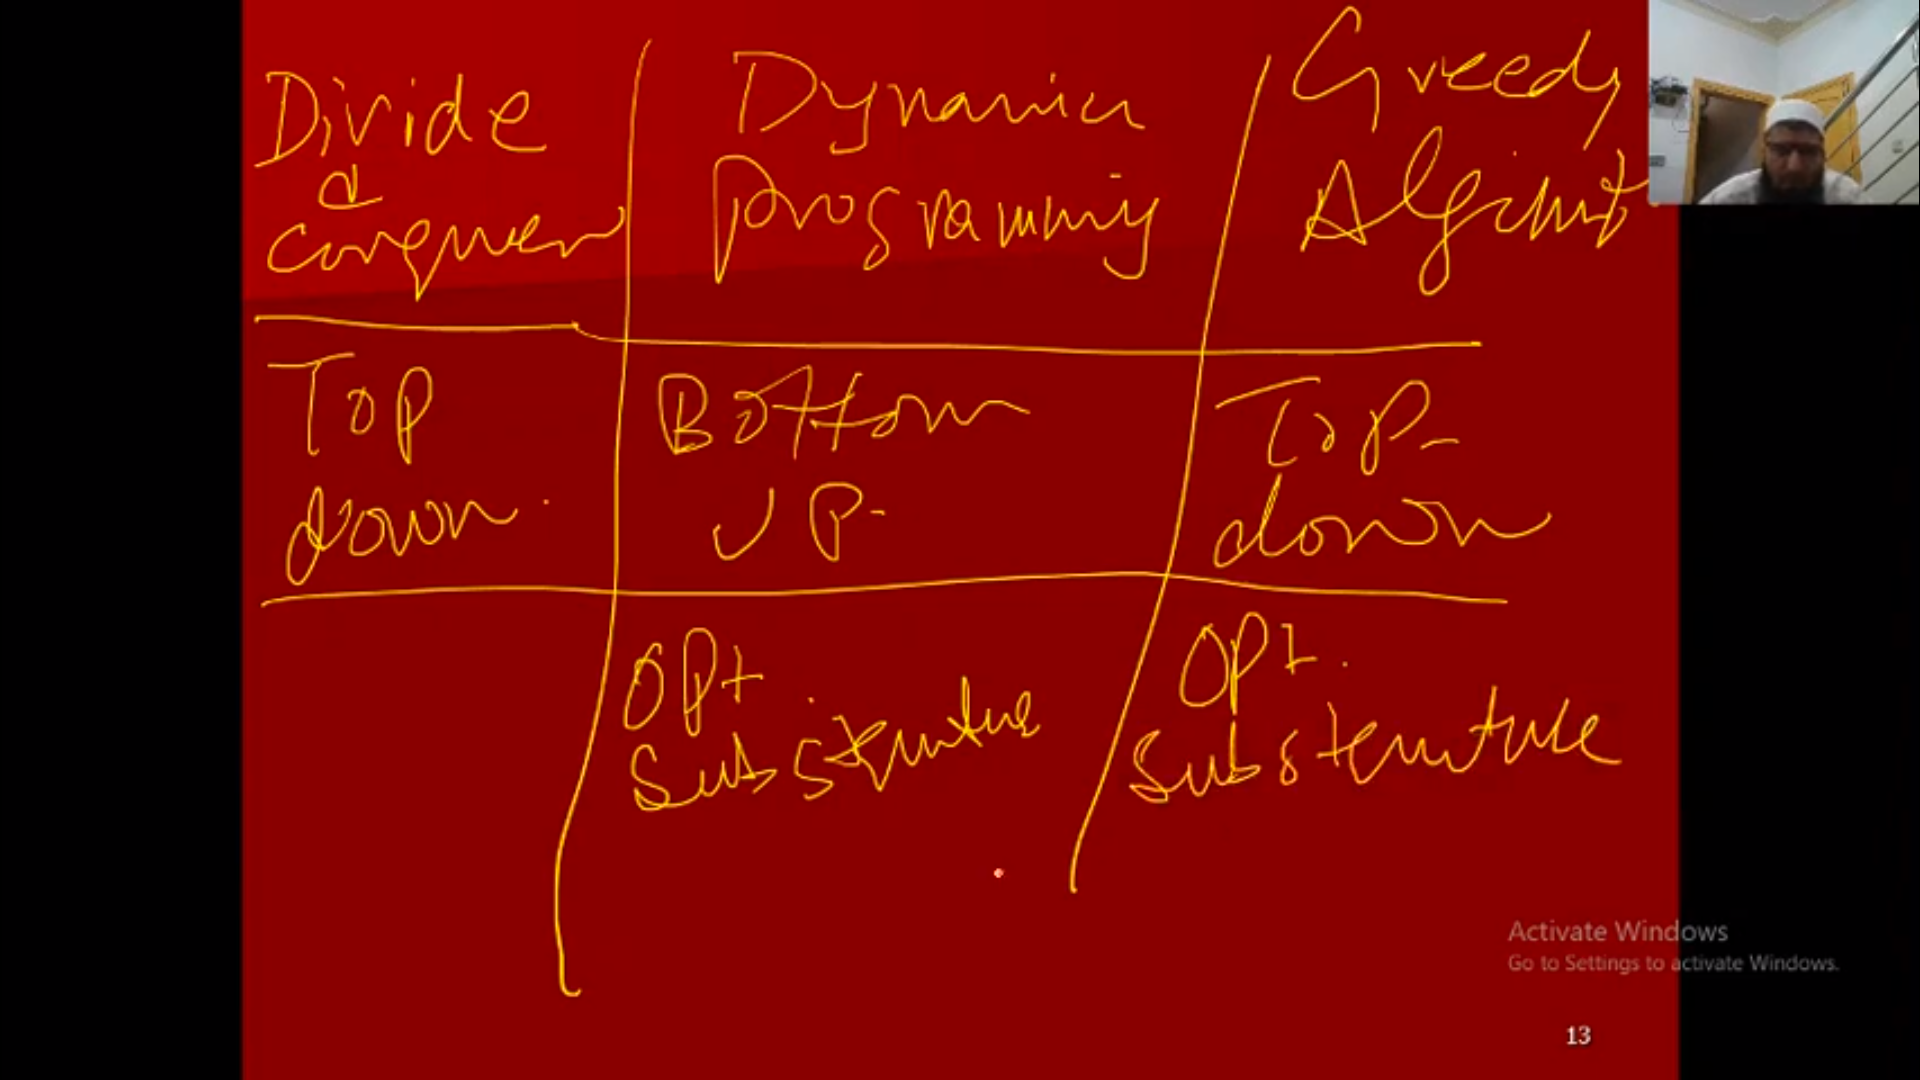 Divide
&
conquer
Dynamic
Programming
Greedy
Algorithm
Top
down.
Bottom
UP-
Top-
down
Opt
Substructure
Opt.
Substructure
Activate Windows
Go to Settings to activate Windows.
13